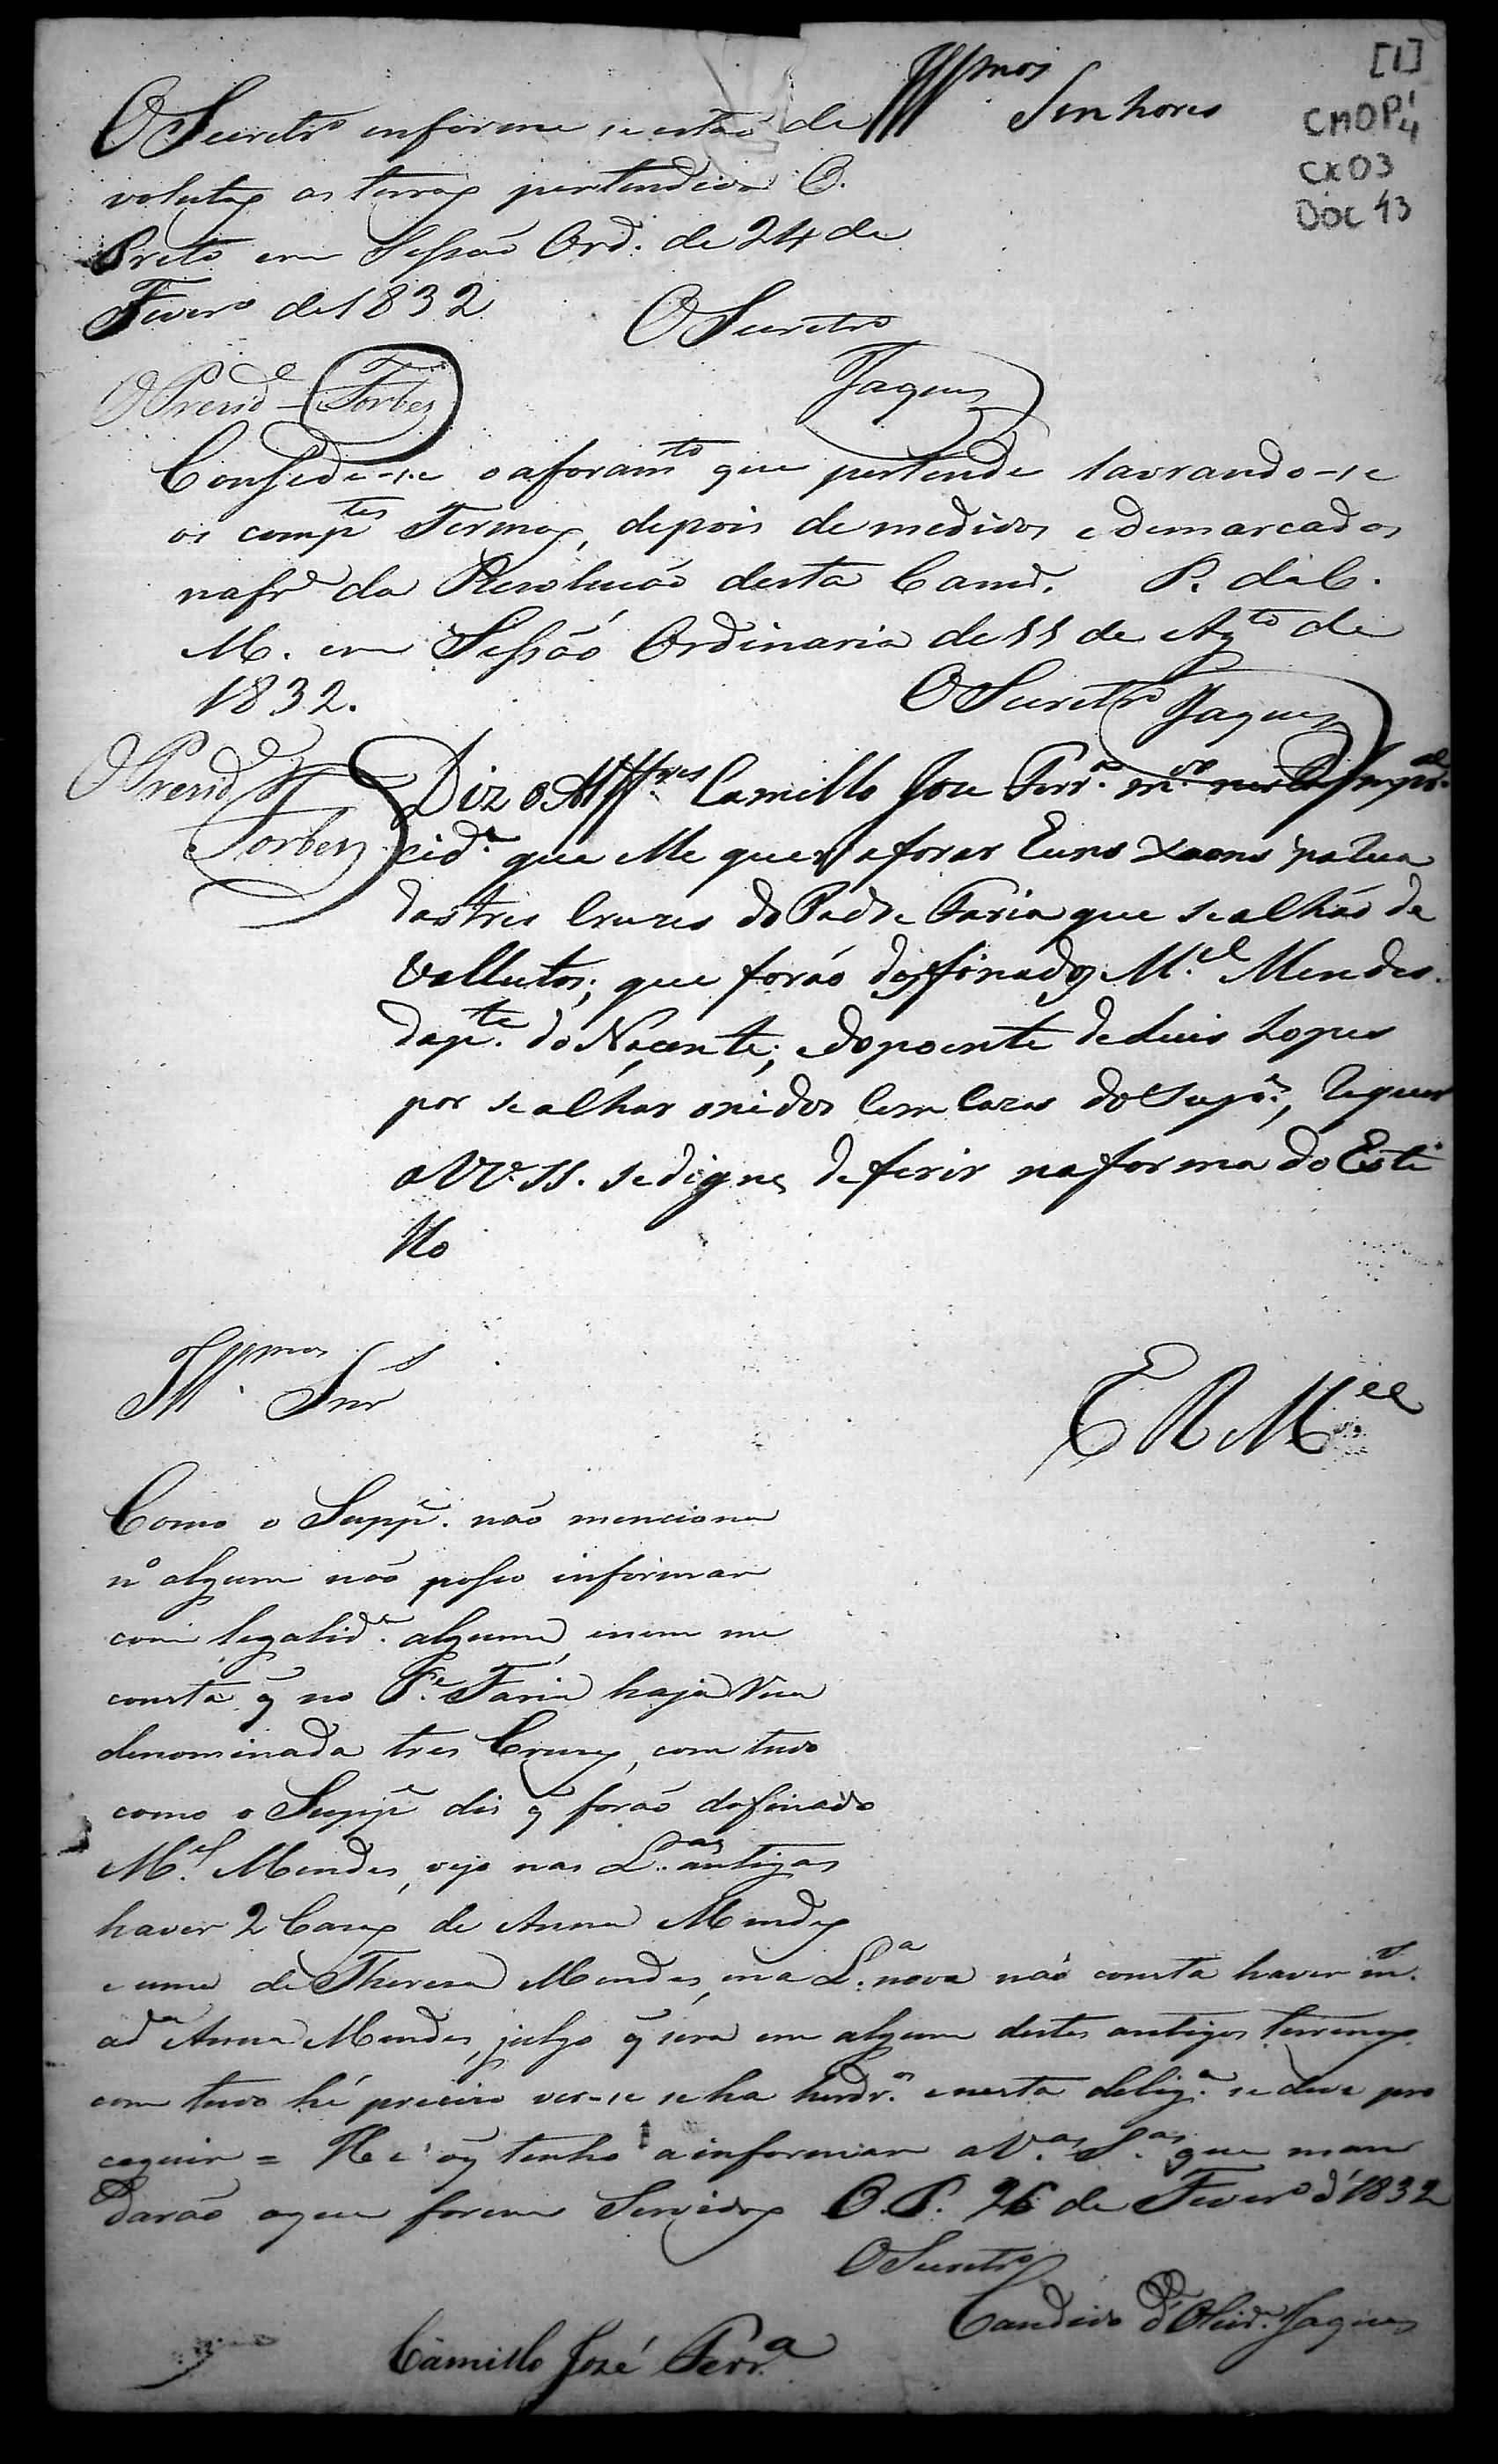 [1]
CMOP 4
CX03
DOC 43
Illmos Senhores
O Secretrº informe se estaõ de
volutas as terras pertendidas O.
Preto em Sessaõ Ord. de 24 de
Feverº de 1832
O Secretrº
Jaques
O Presidᵉ Forbes
Consede-se o aforamᵗᵒ que pertende lavrando-se
os compᵗᵉˢ Termos, depois de medidos e demarcados
na frᵃ da Resoluçaõ desta Camrᵃ. P. da C.
M. em Sessaõ Ordinaria de 11 de Agᵗᵒ de
1832.
O Secretrº Jaques
O Presidᵉ
Forbes
Diz o Alffᵉʳᵉˢ Camillo Joze Ferrᵃ. mºʳ nesta Impᵃˡ
cidᵉ. que elle quer aforar huns xaons na Rua
das tres Cruzes do Padre Faria que se alhaõ de
vallutos; que foraõ dos finados Mᵉˡ Mendes
da pᵗᵉ. do Nacente; e do poente de Luis Lopes
por se alhar onidos com Cazas do Supᵉ, Requer
a VV. SS. se digne deferir na forma do Esti
llo
E R Mᶜᵉ
Illᵐᵒˢ Snrˢ
Como o Suppᵉ. naõ menciona
nº algum naõ posso informar
com legalidᵉ. alguma, e nem me
consta q̃ no Pᵉ. Faria haja Rua
denominada tres Cruzes, com tudo
como o Suppᵉ diz q̃ foraõ do finado
Mᵉˡ. Mendes, vejo nas L.ᵃˢ antigas
haver 2 Cazas de Anna Mendes
e uma de Thereza Mendes, e na L.ᵃ nova naõ consta haver
a dᵃ Anna Mendes, julgo q̃ sera em algum destes antigos terrenos
com tudo hé preciso ver-se se ha herdrºˢ e nesta deligᵃ. se deve pro
ceguir = He o q̃ tenho a informar a V.ᵃˢ S.ᵃˢ que man
daraõ o que forem Servidos O. P. 26 de Feverº d'1832
O Secretrº
Candido d'Olivrᵃ. Jaques
Camillo José Ferrᵃ